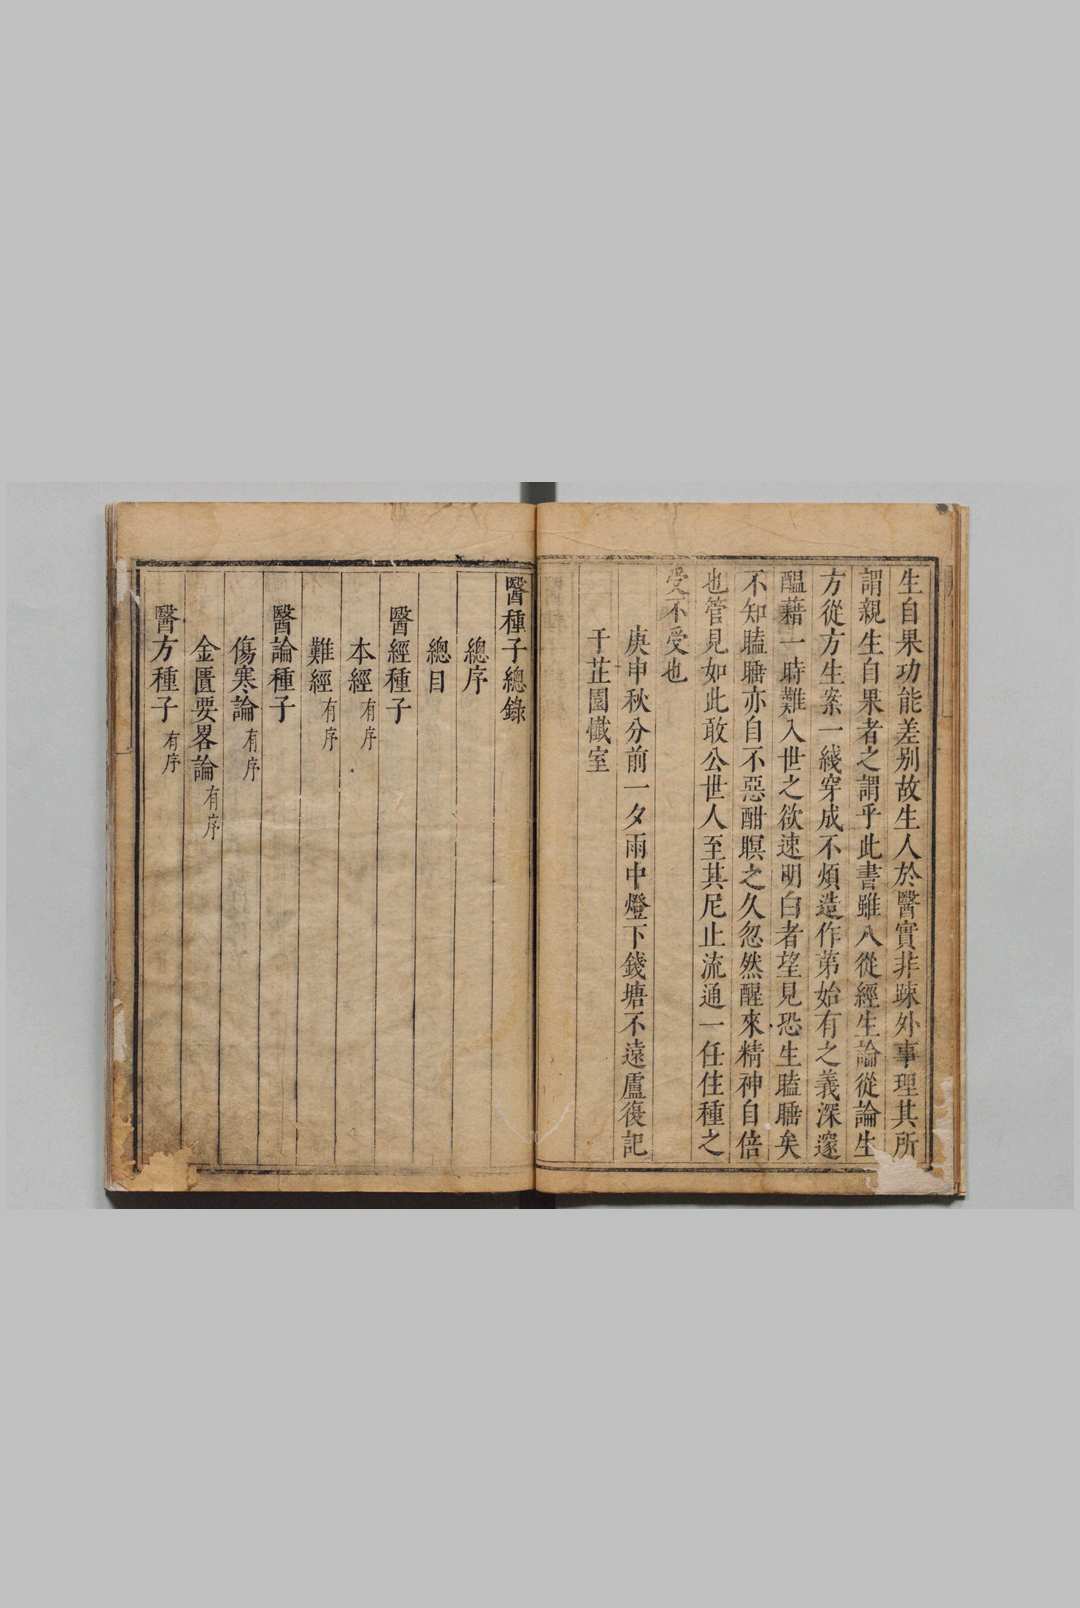 生自果功能差別故生人於醫實非踈外事理其所
謂親生自果者之謂乎此書雖入從經生論從論生
方從方生案一綫穿成不煩造作苐始有之義深邃
醞藉一時難入世之欲速明白者望見恐生瞌𥋙矣
不知瞌𥋙亦自不惡酣瞑之久忽然醒來精神自倍
也管見如此敢公世人至其尼止流通一任住種之
受不受也
庚申秋分前一夕雨中燈下錢塘不遠盧復記
于芷園懺室
醫種子總錄
總序
總目
醫經種子
本經有序
難經有序
醫論種子
傷寒論有序
金匱要畧論有序
醫方種子有序